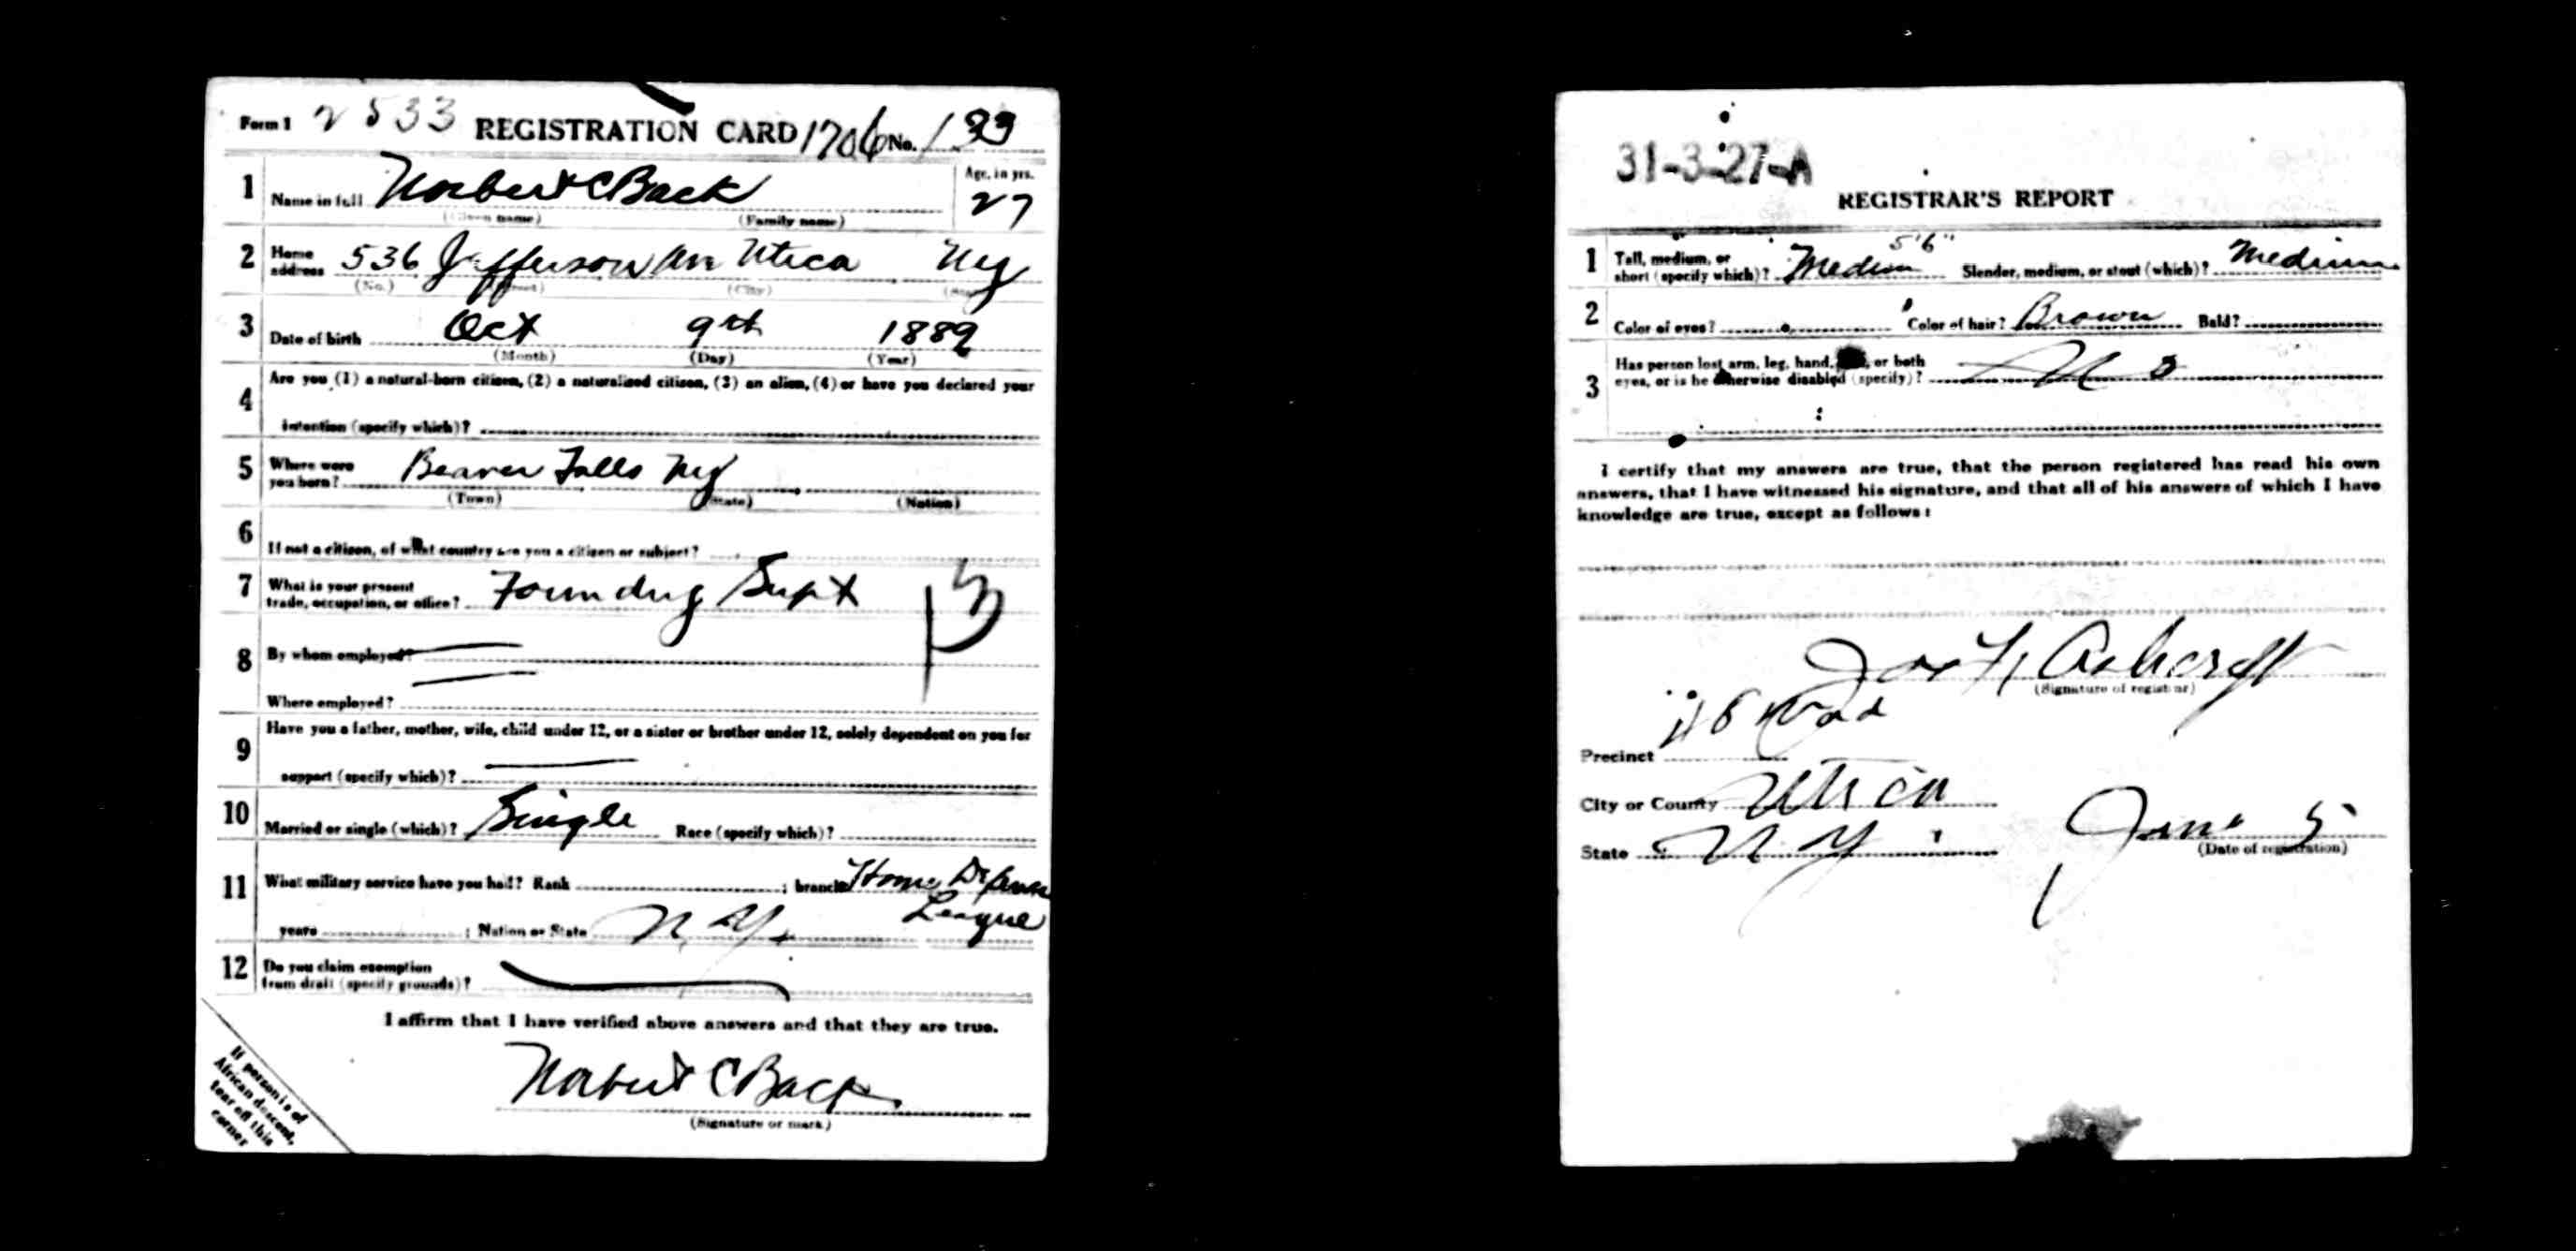 Form 1 2533 REGISTRATION CARD 1706 No. 133
1 Name in full Norbert C Back Age, in yrs. 27
(Given name) (Family name)
2 Home address 536 Jefferson Ave Utica NY
(No.) (Street) (City) (State)
3 Date of birth Oct 9th 1889
(Month) (Day) (Year)
4 Are you (1) a natural-born citizen, (2) a naturalized citizen, (3) an alien, (4) or have you declared your
intention (specify which)?
5 Where were you born? Beaver Falls NY
(Town) (State) (Nation)
6 If not a citizen, of what country are you a citizen or subject?
7 What is your present trade, occupation, or office? Foundry Supt
8 By whom employed?
Where employed?
9 Have you a father, mother, wife, child under 12, or a sister or brother under 12, solely dependent on you for
support (specify which)?
10 Married or single (which)? Single Race (specify which)?
11 What military service have you had? Rank ; branch Home Defense
League
years ; Nation or State N.Y.
12 Do you claim exemption
from draft (specify grounds)?
I affirm that I have verified above answers and that they are true.
Norbert C Back
(Signature or mark)
If person is of
African descent,
tear off this
corner
31-3-27-A
REGISTRAR'S REPORT
1 Tall, medium, or short (specify which)? Medium 5'6" Slender, medium, or stout (which)? Medium
2 Color of eyes? Color of hair? Brown Bald?
3 Has person lost arm, leg, hand, or both
eyes, or is he otherwise disabled (specify)? No
I certify that my answers are true, that the person registered has read his own
answers, that I have witnessed his signature, and that all of his answers of which I have
knowledge are true, except as follows:
Ashcroft
(Signature of registrar)
Precinct
City or County Utica
State N Y June 5
(Date of registration)